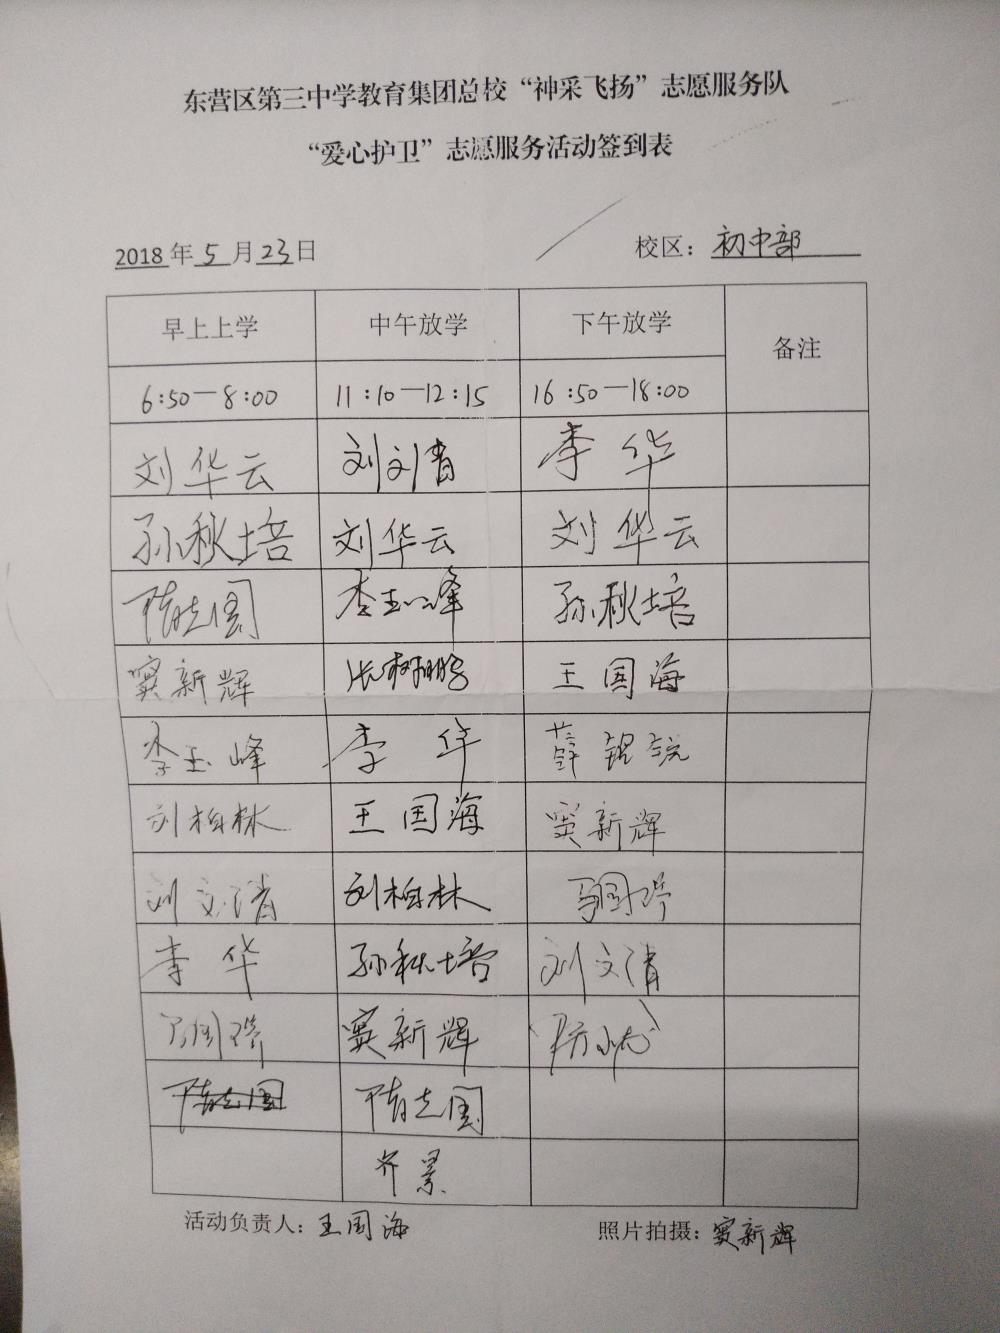 东营区第三中学教育集团总校“神采飞扬”志愿服务队
“爱心护卫”志愿服务活动签到表
2018年5月23日 校区：初中部
早上上学 中午放学 下午放学 备注
6:50—8:00 11:10—12:15 16:50—18:00
刘华云 刘文清 李华
孙秋培 刘华云 刘华云
隋志国 李玉峰 孙秋培
窦新辉 张树鹏 王国海
李玉峰 李华 薛铭
刘柏林 王国海 窦新辉
刘文清 刘柏林
李华 孙秋培 刘文清
窦新辉
隋志国 隋志国
齐景
活动负责人：王国海 照片拍摄：窦新辉